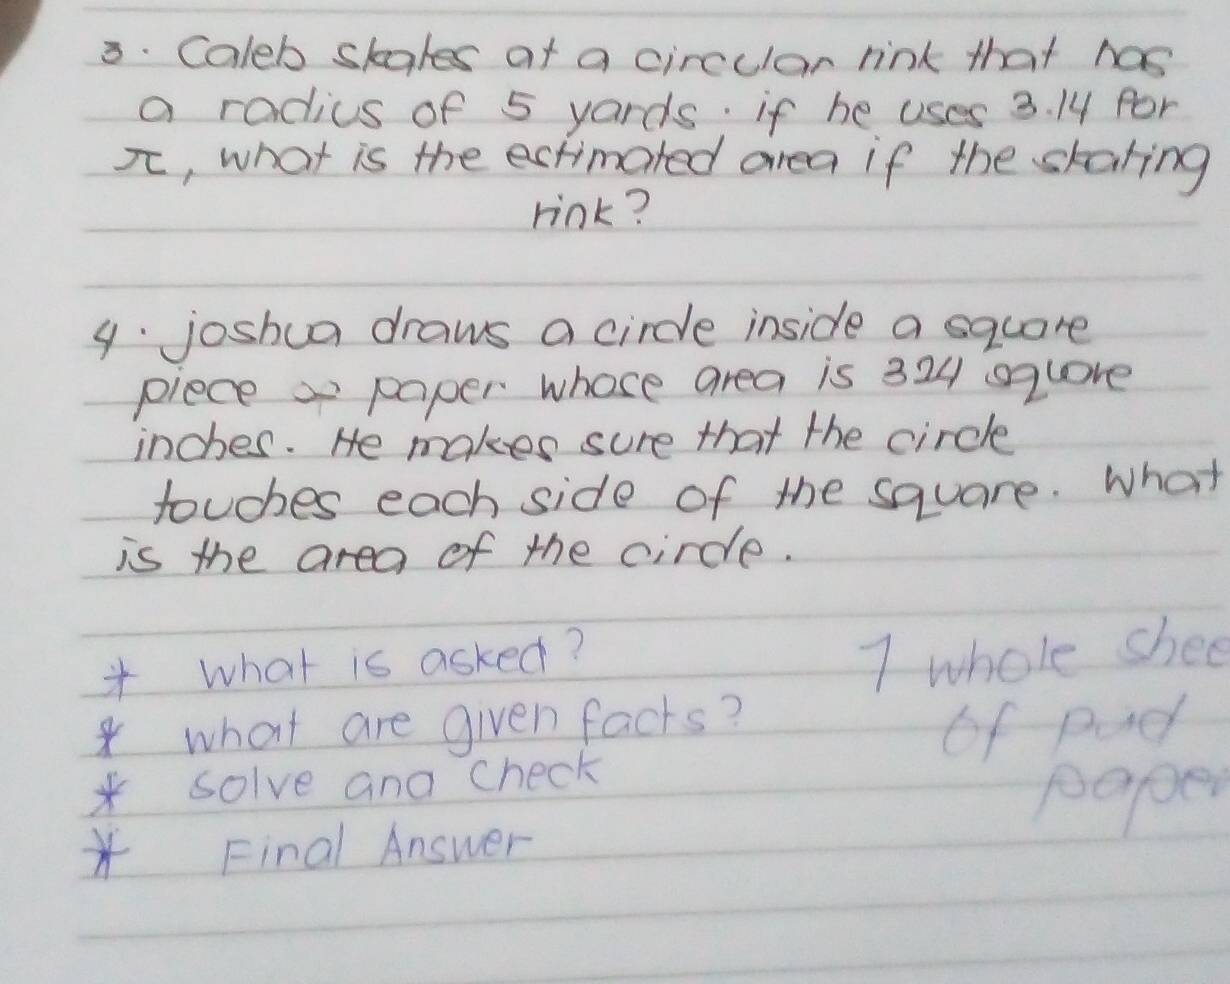 3. Caleb skates at a circular rink that has
a radius of 5 yards. if he uses 3.14 for
π, what is the estimated area if the skating
rink?
4. joshua draws a circle inside a square
piece of paper whose area is 324 square
inches. He makes sure that the circle
touches each side of the square. What
is the area of the circle.
* what is asked?
1 whole shee
* what are given facts?
of pad
* solve and check
paper
* Final Answer